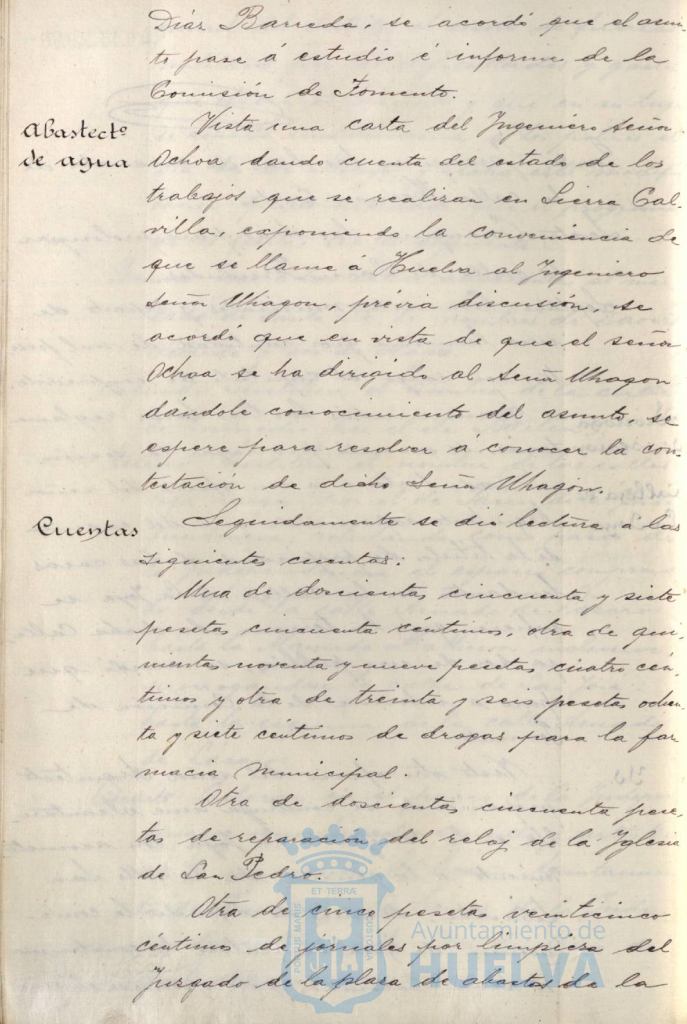 Díaz Barreda, se acordó que el asun-
to pase á estudio é informe de la
Comisión de Fomento.
Abastectº de agua
Vista una carta del Ingeniero señor
Ochoa dando cuenta del estado de los
trabajos que se realizan en Sierra Cal-
villa, exponiendo la conveniencia de
que se llame á Huelva al Ingeniero
señor Uhagon, prévia discusión, se
acordó que en vista de que el señor
Ochoa se ha dirigido al señor Uhagon
dándole conocimiento del asunto, se
espere para resolver á conocer la con-
testación de dicho señor Uhagón.
Cuentas
Seguidamente se dió lectura á las
siguientes cuentas:
Una de doscientas cincuenta y siete
pesetas cincuenta céntimos, otra de qui-
nientas noventa y nueve pesetas cuatro cén-
timos y otra de treinta y seis pesetas ochen-
ta y siete céntimos de drogas para la far-
macia Municipal.
Otra de doscientas cincuenta pese-
tas de reparación del reloj de la Yglesia
de San Pedro.
Otra de cinco pesetas veinticinco
céntimos de jornales por limpieza del
Juzgado de la plaza de abastos de la
PORTUS MARIS
ET TERRÆ
CUSTODIA
Ayuntamiento de
HUELVA